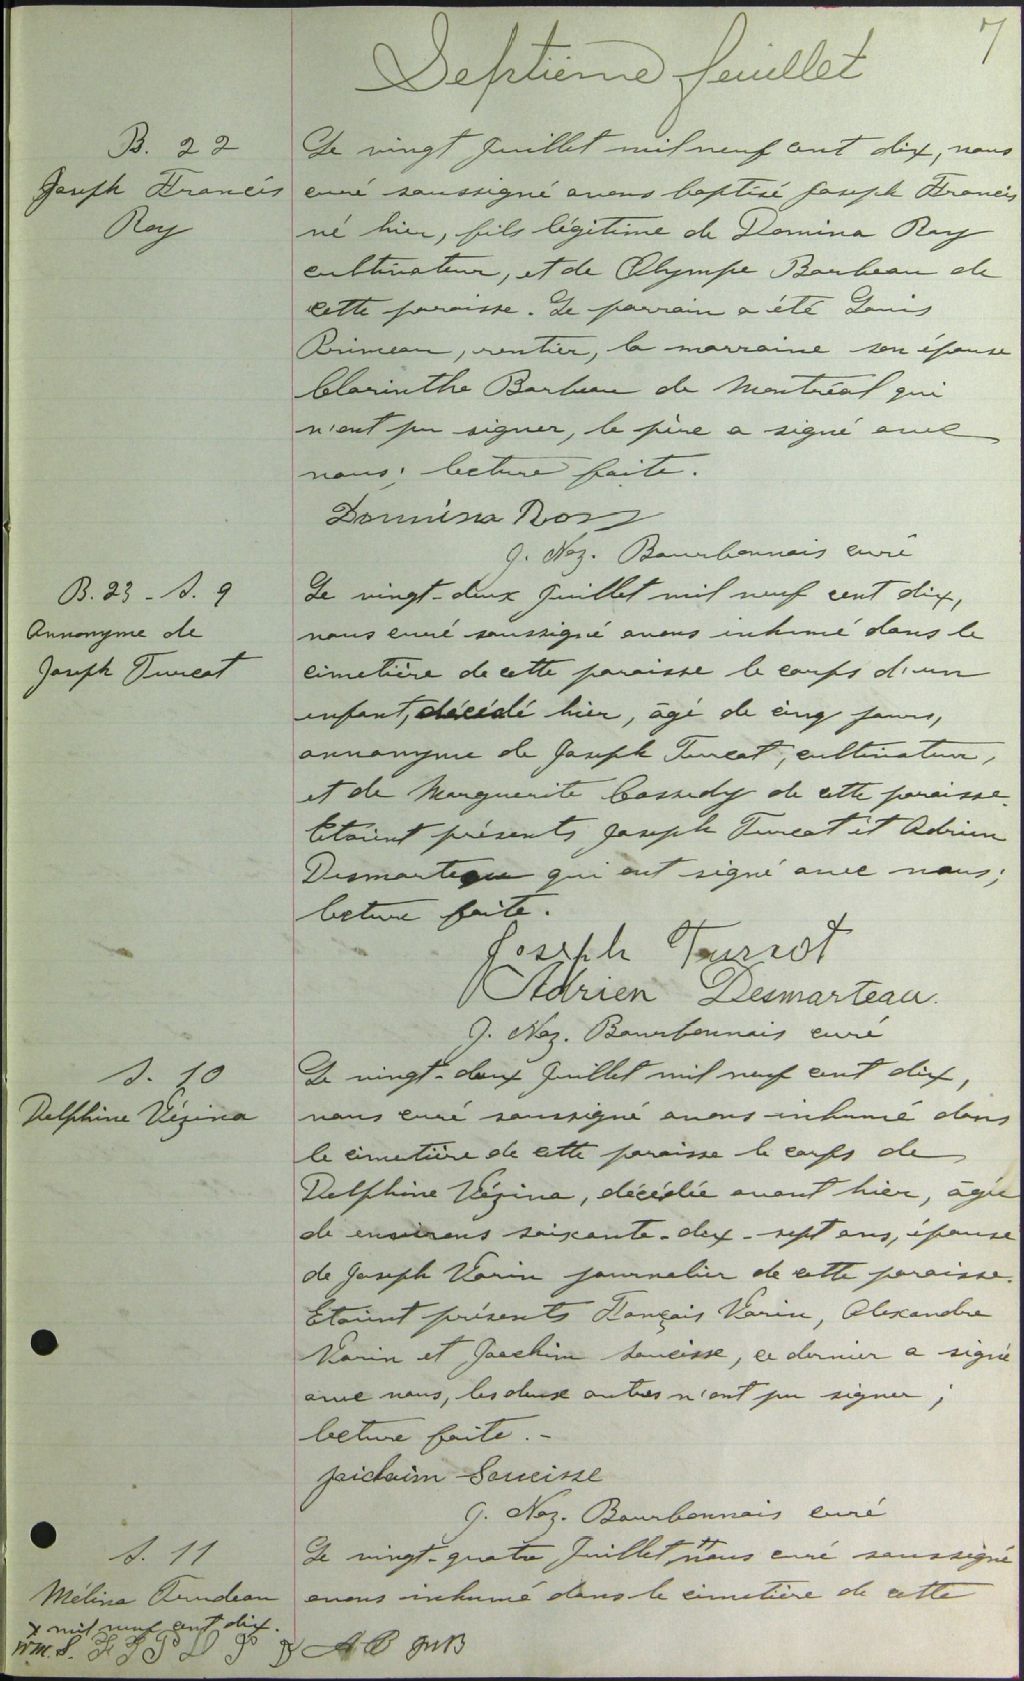 7
Septième feuillet
B. 22
Joseph Francis
Roy
Le vingt Juillet mil neuf cent dix, nous
curé soussigné avons baptisé Joseph Francis
né hier, fils légitime de Domina Roy
cultivateur, et de Olympe Barbeau de
cette paroisse. Le parrain a été Louis
Primeau, rentier, la marraine son épouse
Clarinthe Barbeau de Montréal qui
n'ont pu signer, le père a signé avec
nous; lecture faite.
Domina Roy
J. Naz. Bourbonnais curé
B. 23 - S. 9
Annonyme de
Joseph Turcot
Le vingt-deux Juillet mil neuf cent dix,
nous curé soussigné avons inhumé dans le
cimetière de cette paroisse le corps d'un
enfant, décédé hier, âgé de cinq jours,
annonyme de Joseph Turcot, cultivateur,
et de Marguerite Cassedy de cette paroisse.
Etaient présents Joseph Turcot et Adrien
Desmarteau qui ont signé avec nous;
lecture faite.
Joseph Turcot
Adrien Desmarteau.
J. Naz. Bourbonnais curé
S. 10
Delphine Vézina
Le vingt-deux Juillet mil neuf cent dix,
nous curé soussigné avons inhumé dans
le cimetière de cette paroisse le corps de
Delphine Vézina, décédée avant hier, âgée
de environs soixante-dix-sept ans, épouse
de Joseph Varin journalier de cette paroisse.
Etaient présents François Varin, Alexandre
Varin et Joachim Soucisse, ce dernier a signé
avec nous, les deux autres n'ont pu signer;
lecture faite. -
Joichaim Soucisse
J. Naz. Bourbonnais curé
S. 11
Mélina Trudeau
Le vingt-quatre Juillet, nous curé soussigné
avons inhumé dans le cimetière de cette
x mil neuf cent dix.
W.M.S. A B JNB